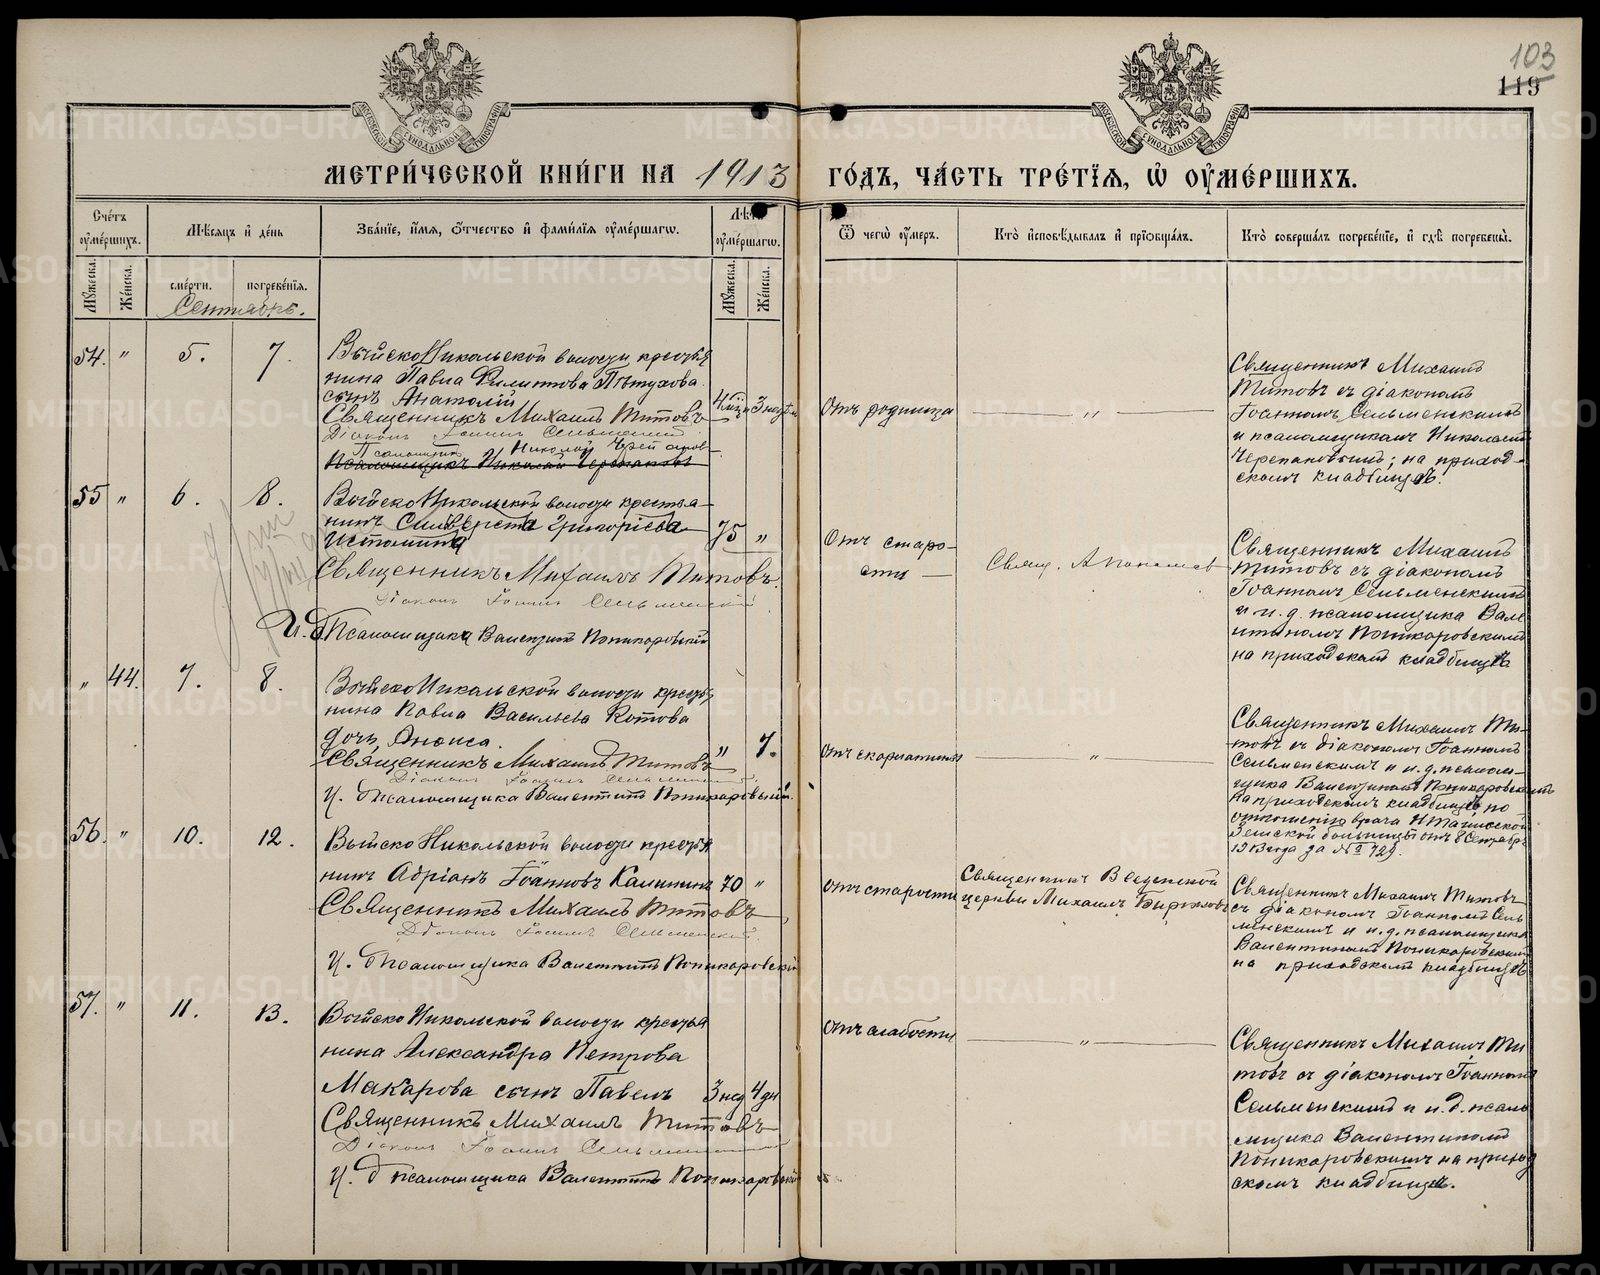 103
119
МЕТРИ́ЧЕСКОЙ КНИ́ГИ НА 1913
ГО́ДЪ, ЧА́СТЬ ТРЕ́ТЇѦ, Ѡ҆ ОУ҆МЕ́РШИХЪ.
Сче́тъ оу҆ме́ршихъ.
Мѣ́сяцъ и҆ де́нь
Зва́нїе, и҆́мѧ, ѻ҆́тчество и҆ фами́лїѧ оу҆ме́ршагѡ.
Лѣта
оу҆ме́ршагѡ.
Ѿ чегѡ̀ оу҆́меръ.
Кто̀ и҆сповѣ́дывалъ и҆ прїѡбща́лъ.
Кто̀ соверша́лъ погребе́нїе, и҆ гдѣ̀ погребены̀.
Мꙋжеска.
Же́нска.
сме́рти.
погребе́нїѧ.
Мꙋжеска.
Же́нска.
Сентябрь.
54. " 5. 7.
Выйско Никольской волости крестья
нина Павла Филиппова Пѣтухова
сынъ Анатолій
4 мѣс. 3 недѣли
Священникъ Михаилъ Титовъ
Діаконъ Іоаннъ Сельменскій
Псаломщикъ Николай Черепановъ
Псаломщикъ Николай Черепановъ
Отъ родимца
"
Священникъ Михаилъ
Титовъ съ діакономъ
Іоанномъ Сельменскимъ
и псаломщикомъ Николаемъ
Черепановымъ; на приход-
скомъ кладбищѣ.
55 " 6. 8.
Выйско Никольской волости крестья-
нинъ Силиверстъ Григорьевъ
Истоминъ
75 "
Священникъ Михаилъ Титовъ.
Діаконъ Іоаннъ Сельменскій
И. д. Псаломщика Валентинъ Поникаровскій
Отъ старо-
сти
Свящ.
Священникъ Михаилъ
Титовъ съ діакономъ
Іоанномъ Сельменскимъ
и и. д. псаломщика Вале
нтиномъ Поникаровскимъ
на приходскомъ кладбищѣ
" 44. 7. 8.
Выйско Никольской волости крестья
нина Павла Васильева Котова
дочь Анфиса.
" 7.
Священникъ Михаилъ Титовъ
Діаконъ Іоаннъ Сельменскій
И. д. Псаломщика Валентинъ Поникаровскій.
Отъ скарлатины
"
Священникъ Михаилъ Ти-
товъ съ діакономъ Іоанномъ
Сельменскимъ и и. д. псалом-
щика Валентиномъ Поникаровскимъ
на приходскомъ кладбищѣ, по
отношенію врача Н Тагильской
Земской больницы отъ 8 Сентября
1913 года за № 729.
56. " 10. 12.
Выйско Никольской волости крестья
нинъ Адріанъ Іоанновъ Калининъ
70 "
Священникъ Михаилъ Титовъ
Діаконъ Іоаннъ Сельменскій.
И. д. Псаломщика Валентинъ Поникаровскій
Отъ старости
Священникъ Введенской
церкви Михаилъ
Священникъ Михаилъ Титовъ
съ діакономъ Іоанномъ Сель
менскимъ и и. д. псаломщика
Валентиномъ Поникаровскимъ
на приходскомъ кладбищѣ
57. " 11. 13.
Выйско Никольской волости крестья
нина Александра Петрова
Макарова сынъ Павелъ
3 нед 4 дн
Священникъ Михаилъ Титовъ
Діаконъ Іоаннъ Сельменскій
И. д. псаломщика Валентинъ Поникаровскій
Отъ слабости
"
Священникъ Михаилъ Ти
товъ съ діакономъ Іоанномъ
Сельменскимъ и и. д. псало
мщика Валентиномъ
Поникаровскимъ на приход
скомъ кладбищѣ.